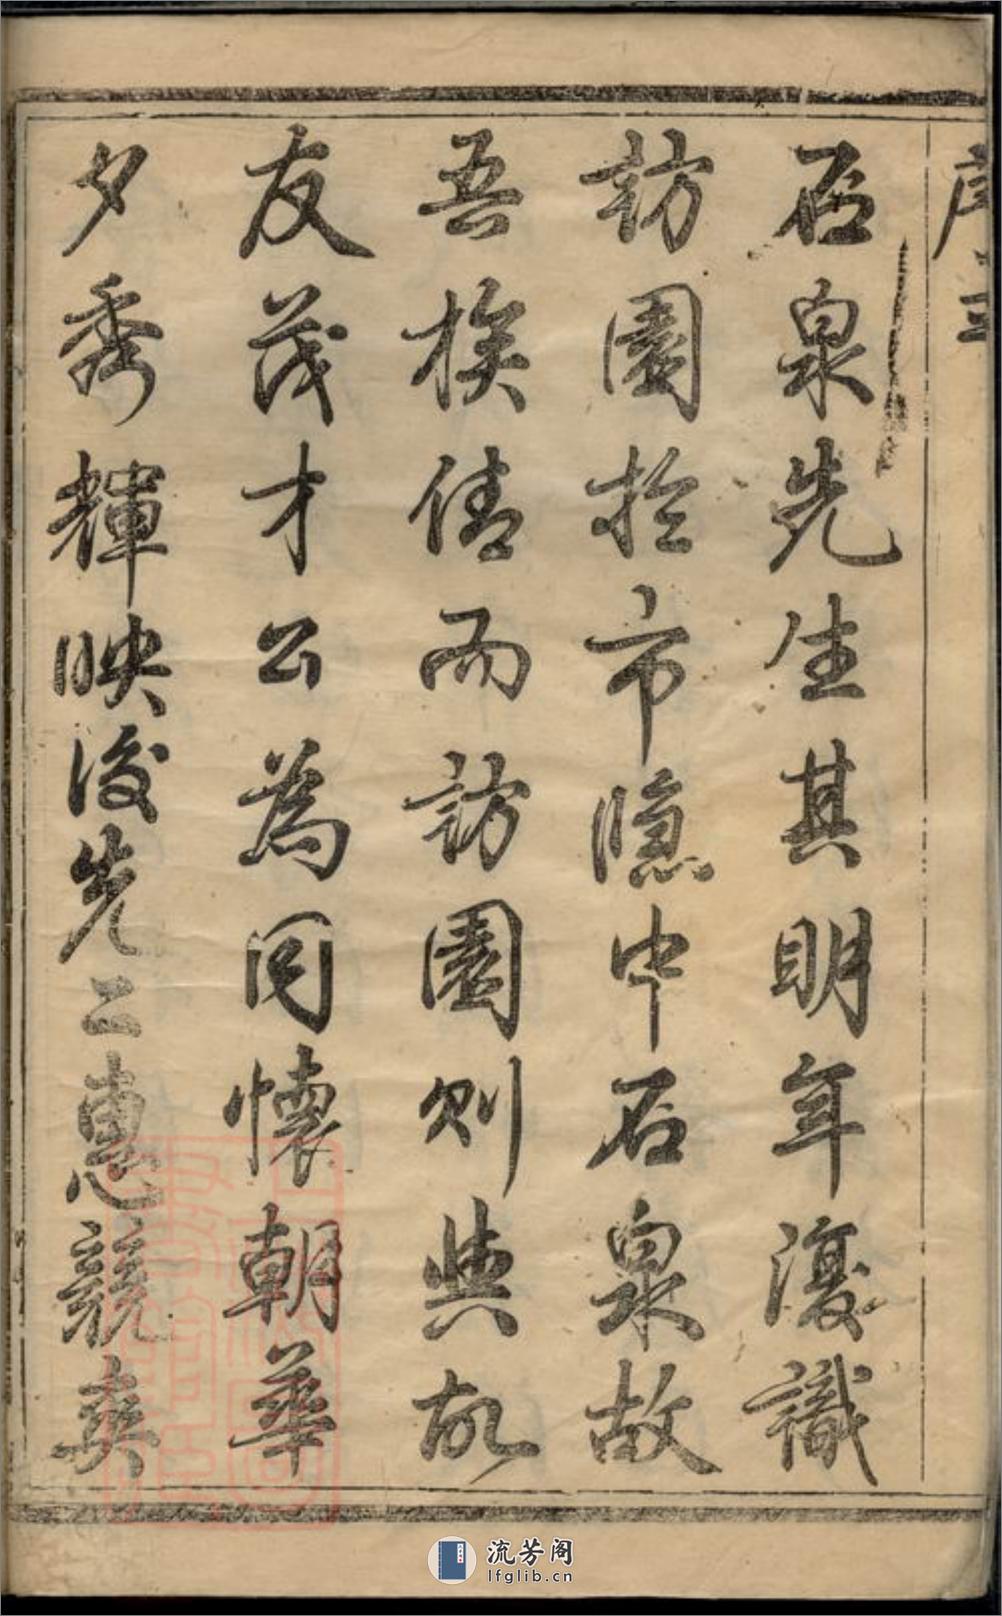 序 三
石泉先生其明年復識
訪園於市隱中石泉故
吾族倩而訪園則與故
友茂才公為同懷朝華
夕秀輝映後先二惠競爽
流芳阁
lfglib.cn